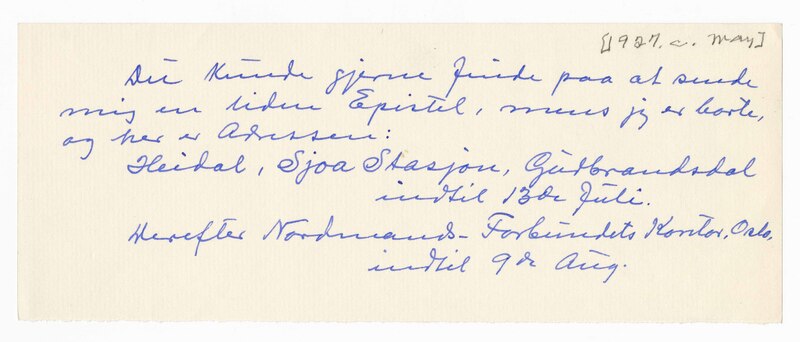 [1927. c. May]
Du kunde gjerne finde paa at sende
mig en liden Epistel, mens jeg er borte,
og her er Adressen:
Heidal, Sjoa Stasjon, Gudbrandsdal
indtil 13de Juli.
Derefter Nordmands-Forbundets Kontor, Oslo,
indtil 9de Aug.